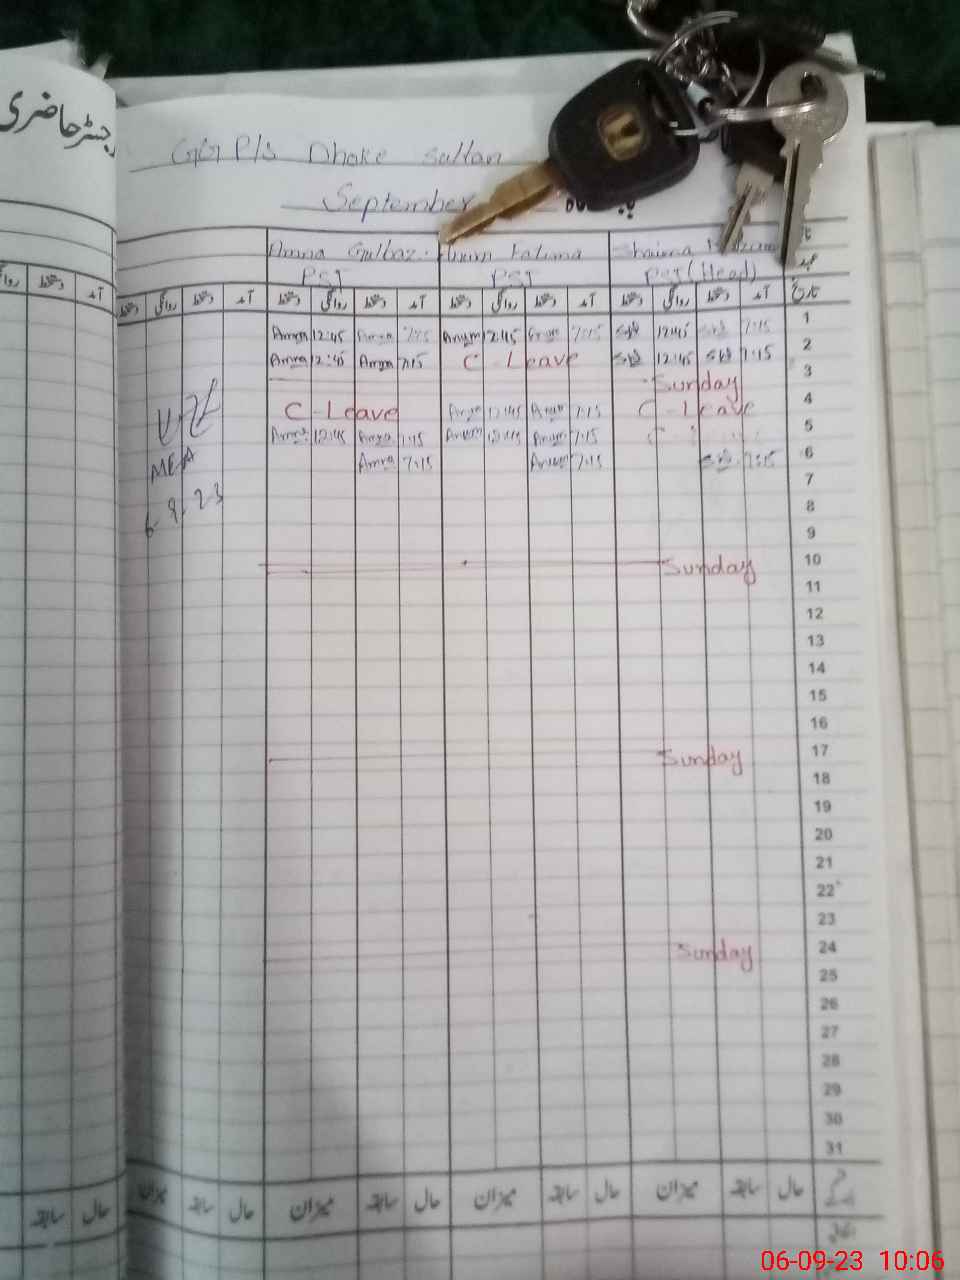 رجسٹر حاضری
GG P/S Dhoke Sultan
September
Amna Gulbaz Anum Fatima Shaima
PST PST PST (Head)
دستخط آمد دستخط روانگی دستخط آمد دستخط روانگی دستخط آمد دستخط روانگی دستخط آمد تاریخ
Amna 12:45 Amna 7:15 Anum 12:45 Anum 7:15 12:45 7:15 1
Amna 12:45 Amna 7:15 C-Leave 12:45 7:15 2
Sunday 3
C-Leave Anum 12:45 Anum 7:15 C-Leave 4
Amna 12:45 Amna 7:15 Anum 12:45 Anum 7:15 5
Amna 7:15 Anum 7:15 7:15 6
MEA
6.9.23
7
8
9
Sunday 10
11
12
13
14
15
16
Sunday 17
18
19
20
21
22
23
Sunday 24
25
26
27
28
29
30
31
سابقہ حال میزان سابقہ حال میزان سابقہ حال میزان سابقہ حال میزان سابقہ حال
06-09-23 10:06